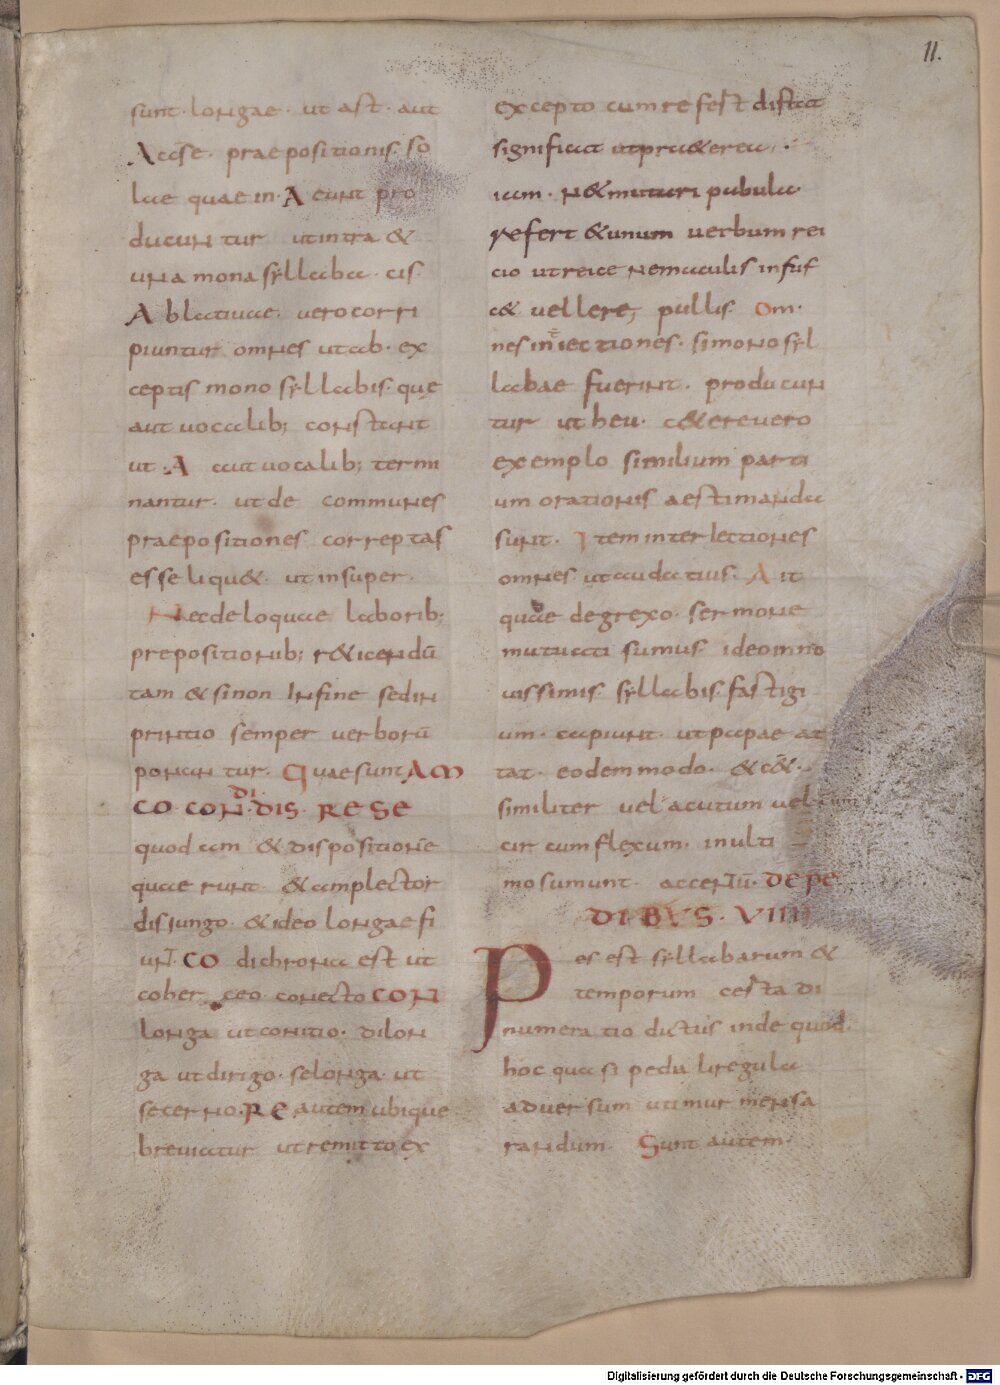 11.
sunt · longae · ut ast · aut
Acase · praepositionis · so
lae quae in · A eunt pro
ducuntur ut intra &
una monasyllaba · cis ·
Ablatiuae · uero corri
piuntur omnes ut ab · ex
ceptis monosyllabis · que
aut uocalib; constant
ut · A aut uocalib; termi
nantur · ut de communes
praepositiones correptas
esse liqu& · ut insuper ·
Nec de loquae laborib;
prepositionib; r&icendū
tam & si non In fine sed in
printio semper uerborū
ponuntur · Quae sunt AM
CO · CON · DI · DIS · RE SE
quod am & dispositionē
quae runt · & amplector
disiungo · & ideo longae fi
unt · CO dichrona est ut
coher ceo · conecto CON
longa ut conitio · di lon
ga ut dirigo · se longa · ut
secerno · RE autem ubique
breuiatur ut remitto ex
excepto cum refert distat
significat ut pra&erea ·
iam · n& mutari pabula
refert & unum uerbum rei
cio ut reice ne maculis infuf
c& uellere; pullis · Om
nes iniectiones · si monosyl
labae fuerint · producun
tur ut heu · c&ere uero
exemplo similium parti
um orationis aestimanda
sunt · Item interlectiones
omnes · ut audatius · Ait
quae de grexo · sermone
mutuati sumus · ideo in no
uissimis · syllabis · fastigi
um · capiunt · ut papae at
tat · eodem modo · & c&̄ ·
similiter uel acutum uel cum
circumflexum · in ulti
mo sumunt · accentū · DE PE
DIBUS · VIIII
Pes est syllabarum &
temporum certa di
numeratio dictus inde quod
hoc quasi pedali regula
aduersum utimur mensa
randum · Sunt autem ·
Digitalisierung gefördert durch die Deutsche Forschungsgemeinschaft - DFG